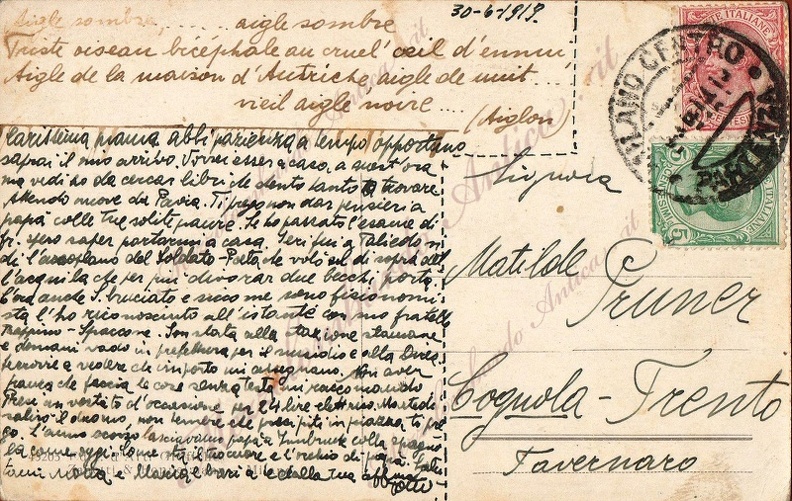 30-6-1919.
Aigle sombre, ..... aigle sombre
Triste oiseau bicéphale au cruel œil d'ennui,
Aigle de la maison d'Autriche, aigle de nuit ....
vieil aigle noire ....
(Aiglon)
Carissima mamma abbi pazienza a tempo opportuno
saprai il mio arrivo. Vorrei esser a casa, a quest'ora
ma vedi ho da cercar libri che stento tanto a trovare
Attendo nuove da Pavia. Ti prego non dar pensieri a
papà colle tue solite paure. Se ho passato l'esame di
fr. spero saper portarmi a casa. Ieri fui a Taliedo vi
di l'aeroplano del Soldato-Poeta che volò sul di sopra del
l'acquila che per più divorar due becchi porta.
C'era anche S. bruciato e siccome sono fisionomi
sta l'ho riconosciuto all'istante con suo fratello
Peppino - Spaccone. Son stata alla stazione stamane
e domani vado in prefettura per il sussidio e alla Direz.
ferrovie a vedere che importo mi assegnano. Non aver
paura che faccia le cose senza testa mi raccomando
Presi un vestito d'occasione per 24 lire
salirò il duomo, non temere che precipiti in piazza ti pre
go. L'anno scorso lasciavamo papà a Innsbruck colla
la come oggi. Come sta il
tami e bacia e dalla tua
Signora
Matilde
Pruner
Cognola - Trento
Tavernaro
MILANO CENTRO
PARTENZA
POSTE ITALIANE
5